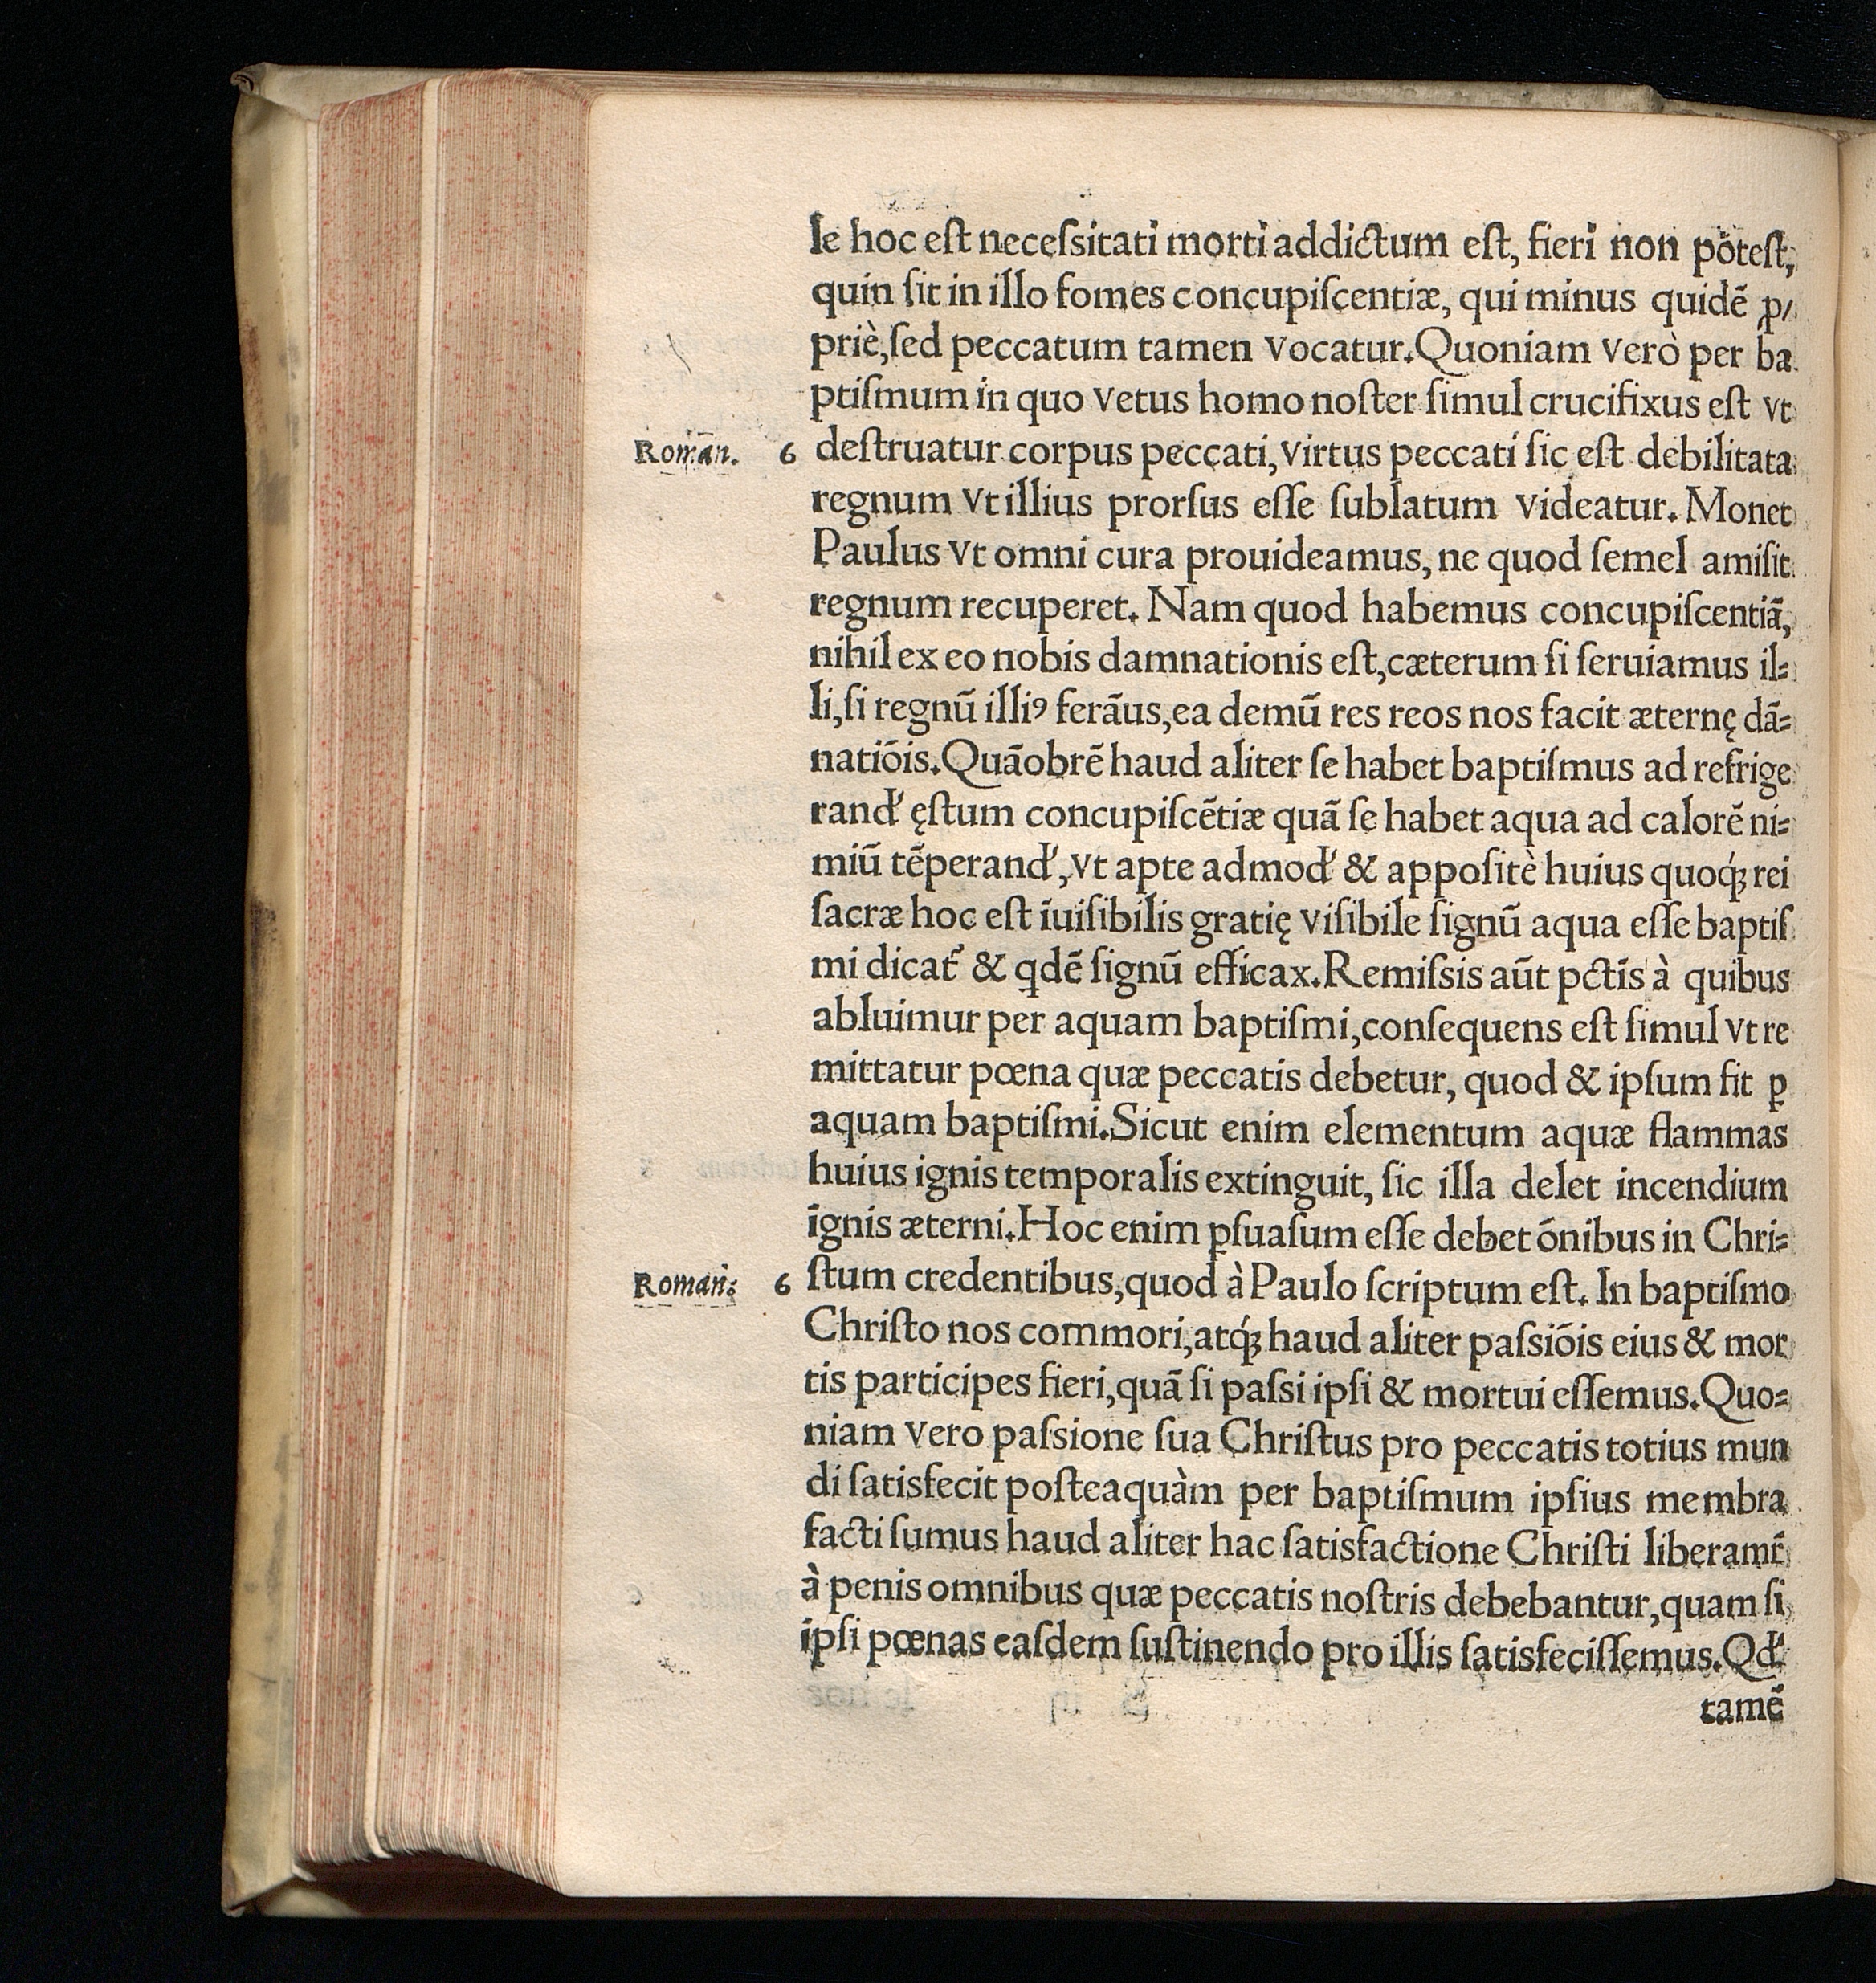 le hoc eſt neceſsitati morti addictum eſt, fieri non poteſt,
quin ſit in illo fomes concupiſcentiæ, qui minus quidē ꝓ/
priè, ſed peccatum tamen vocatur. Quoniam verò per ba
ptiſmum in quo vetus homo noſter ſimul crucifixus eſt vt
Roman. 6 deſtruatur corpus peccati, virtus peccati ſic eſt debilitata
regnum vt illius prorſus eſſe ſublatum videatur. Monet
Paulus vt omni cura prouideamus, ne quod ſemel amiſit
regnum recuperet. Nam quod habemus concupiſcentiā,
nihil ex eo nobis damnationis eſt, cæterum ſi ſeruiamus il⸗
li, ſi regnū illiꝰ ferāus, ea demū res reos nos facit æternę dā⸗
natiōis. Quāobrē haud aliter ſe habet baptiſmus ad refrige
rand' ęſtum concupiſcētiæ quā ſe habet aqua ad calorē ni⸗
miū tēperand', vt apte admod' & appoſitè huius quoq́ꝫ rei
ſacræ hoc eſt īuiſibilis gratię viſibile ſignū aqua eſſe baptiſ
mi dicat᷑ & qdē ſignū efficax. Remiſsis aūt pctīs à quibus
abluimur per aquam baptiſmi, conſequens eſt ſimul vt re
mittatur pœna quæ peccatis debetur, quod & ipſum fit ꝑ
aquam baptiſmi. Sicut enim elementum aquæ flammas
huius ignis temporalis extinguit, ſic illa delet incendium
ignis æterni. Hoc enim ꝑſuaſum eſſe debet ōnibus in Chri⸗
Roman. 6 ſtum credentibus, quod à Paulo ſcriptum eſt. In baptiſmo
Chriſto nos commori, atq́ꝫ haud aliter paſsiōis eius & mor
tis participes fieri, quā ſi paſsi ipſi & mortui eſſemus. Quo⸗
niam vero paſsione ſua Chriſtus pro peccatis totius mun
di ſatisfecit poſteaquàm per baptiſmum ipſius membra
facti ſumus haud aliter hac ſatisfactione Chriſti liberamr̄
à penis omnibus quæ peccatis noſtris debebantur, quam ſi
ipſi pœnas eaſdem ſuſtinendo pro illis ſatisfeciſſemus. Qd'
tamē